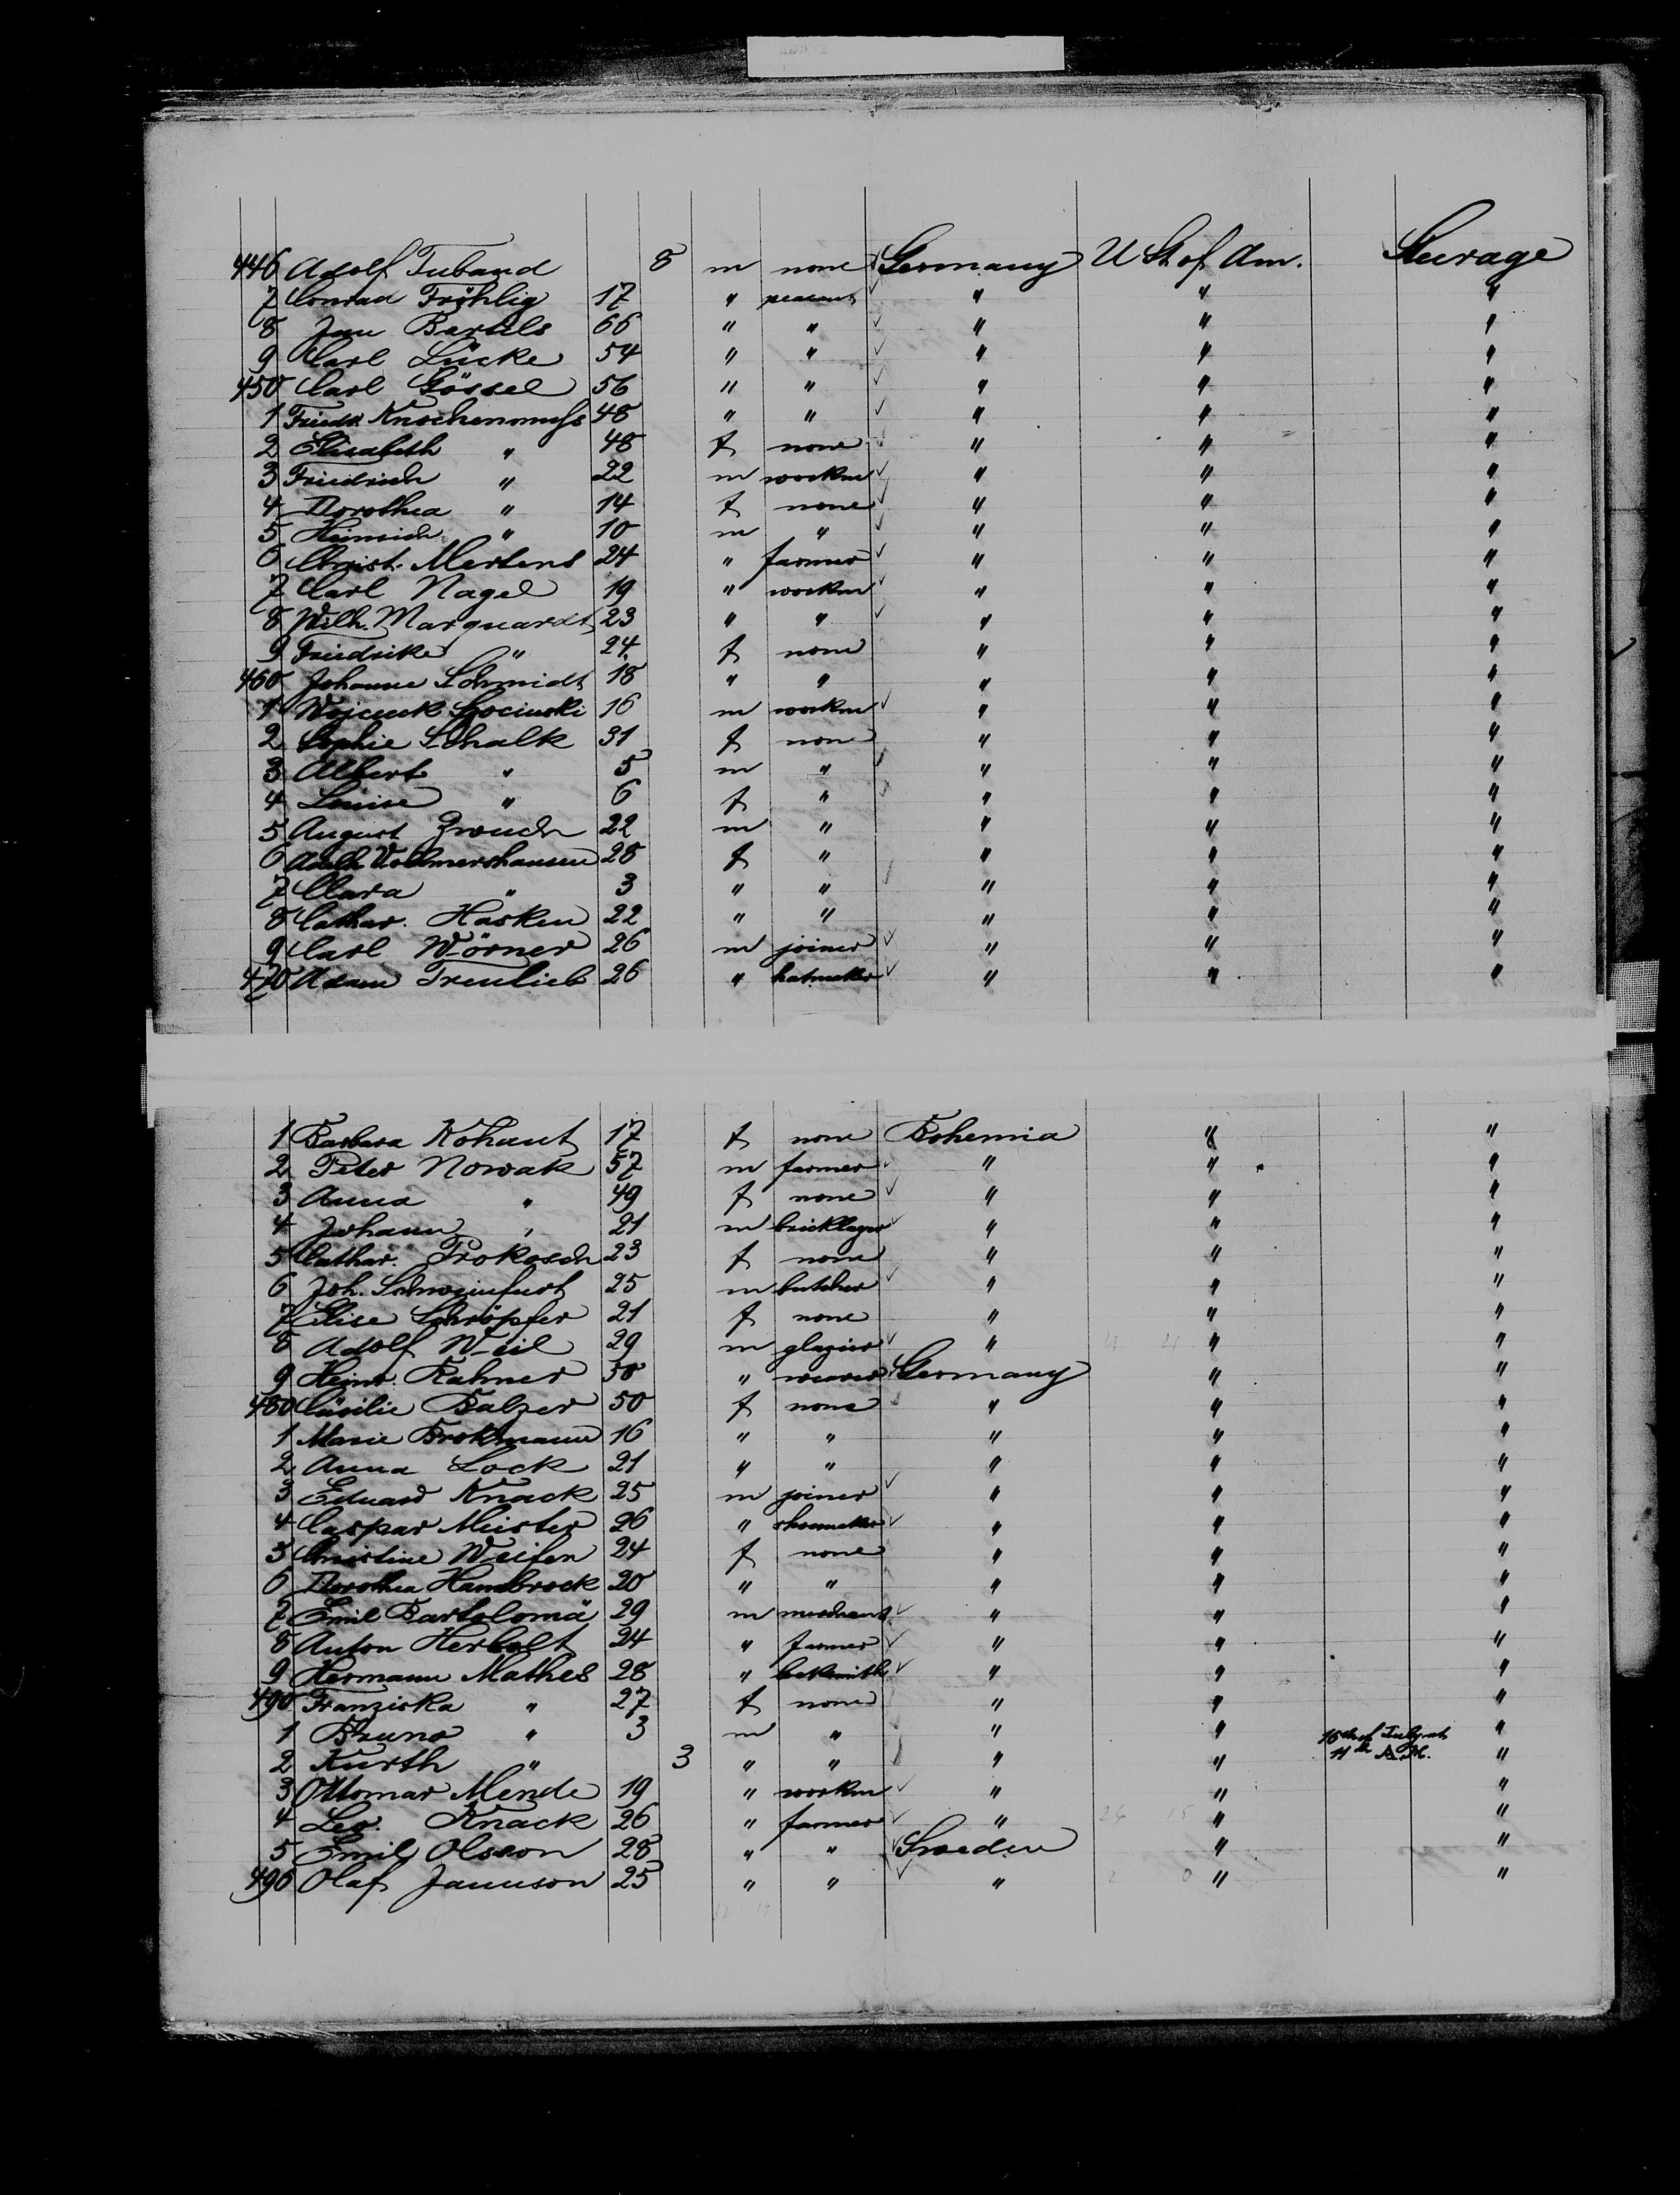 446 Adolf Tuband 8 m none Germany U St. of Am. Steerage
7 Conrad Fröhlig 17 " peasant " " "
8 Jean Bartels 66 " " " " "
9 Carl Lücke 54 " " " " "
450 Carl Gössel 56 " " " " "
1 Friedr. Knochenmuss 48 " " " " "
2 Elisabeth " 48 f none " " "
3 Friedrich " 22 m workm " " "
4 Dorothea " 14 f none " " "
5 Heinrich " 10 m " " " "
6 Christ. Mertens 24 " farmer " " "
7 Carl Nagel 19 " workm " " "
8 Wilh. Marquardt 23 " " " " "
9 Friedrike " 24 f none " " "
460 Johanne Schmidt 18 " " " " "
1 16 m workm " " "
2 Sophie Schalk 31 f none " " "
3 Albert " 5 m " " " "
4 Louise " 6 f " " " "
5 August 22 m " " " "
6 Adelh. Vollmershausen 28 f " " " "
7 Clara " 3 " " " " "
8 Cathar. Hasken 22 " " " " "
9 Carl Wörner 26 m joiner " " "
470 Adam Treulieb 26 " hatmaker " " "
1 Barbara Kohaut 17 f none Bohemia " "
2 Peter Nowak 57 m farmer " " "
3 Anna " 49 f none " " "
4 Johann " 21 m bricklayer " " "
5 Cathar. Prokosch 23 f none " " "
6 Joh. Schweinfurt 25 m butcher " " "
7 Elise Schröpfer 21 f none " " "
8 Adolf Weil 29 m glazier " " "
9 Heinr. Rahner 58 " weaver Germany " "
480 Cäcilie Balzer 50 f none " " "
1 Marie Brokmann 16 " " " " "
2 Anna Lock 21 " " " " "
3 Eduard Knack 25 m joiner " " "
4 Caspar Meister 26 " shoemaker " " "
5 Christine Weifen 24 f none " " "
6 Dorothea Hambrock 20 " " " " "
7 Emil Bartolomä 29 m merchant " " "
8 Anton Herbolt 24 " farmer " " "
9 Hermann Mathes 28 " " " "
490 Franziska " 27 f none " " "
1 Bruno " 3 m " " " "
2 Kurth " 3 " " " " 16th of July at 11th A.M. "
3 Ottomar Mende 19 " workm " " "
4 Leo. Knack 26 " farmer " " "
5 Emil Olsson 28 " " Sweden " "
496 Olaf Jannson 25 " " " " "